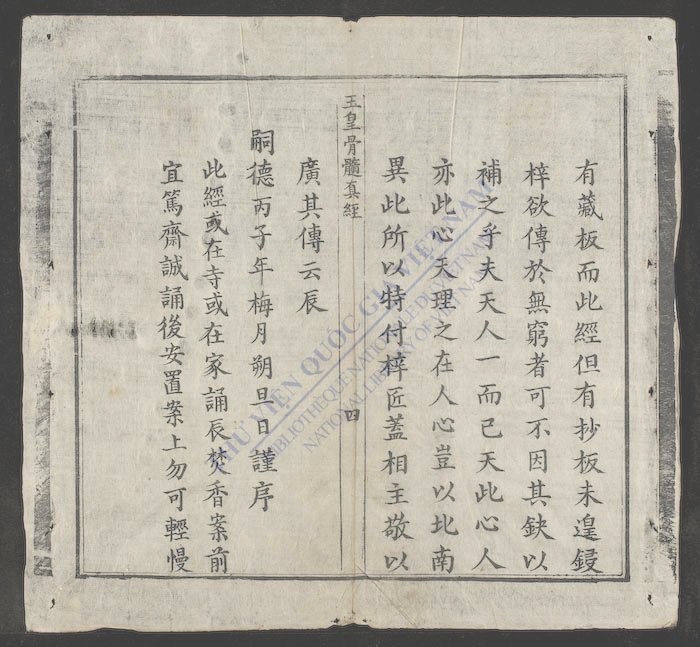 有藏板而此經但有抄板未遑鋟
梓欲傳於無窮者可不因其缺以
補之乎夫天人一而已天此心人
亦此心天理之在人心豈以北南
異此所以特付梓匠蓋相主敬以
玉皇骨髓真經
四
廣其傳云辰
嗣德丙子年梅月朔旦日謹序
此經或在寺或在家誦辰焚香案前
宜篤齋誠誦後安置案上勿可輕慢
THƯ VIỆN QUỐC GIA VIỆT NAM
BIBLIOTHÈQUE NATIONALE DU VIETNAM
NATIONAL LIBRARY OF VIETNAM